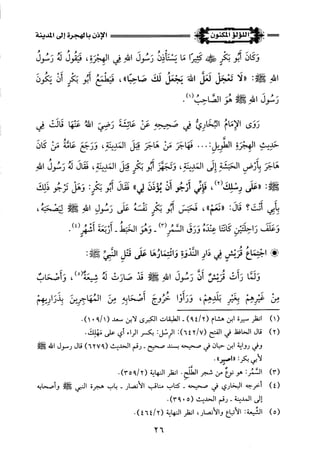 اللؤلؤ المكنون
الإذن بالهجرة إلى المدينة
وَكَانَ أَبُو بَكْرٍ ﷺ كَثِيرًا مَا يَسْتَأْذِنُ رَسُولَ اللهِ فِي الهِجْرَةِ، فَيَقُولُ لَهُ رَسُولُ
اللهِ ﷺ: «لَا تَعْجَلْ لَعَلَّ اللهَ يَجْعَلُ لَكَ صَاحِبًا»، فَيَطْمَعُ أَبُو بَكْرٍ أَنْ يَكُونَ
رَسُولُ اللهِ ﷺ هُوَ الصَّاحِبُ(١).
رَوَى الإِمَامُ البُخَارِيُّ فِي صَحِيحِهِ عَنْ عَائِشَةَ رَضِيَ اللهُ عَنْهَا قَالَتْ فِي
حَدِيثِ الهِجْرَةِ الطَّوِيلِ:... فَهَاجَرَ مَنْ هَاجَرَ قِبَلَ المَدِينَةِ، وَرَجَعَ عَامَّةُ مَنْ كَانَ
هَاجَرَ بِأَرْضِ الحَبَشَةِ إِلَى المَدِينَةِ، وَتَجَهَّزَ أَبُو بَكْرٍ قِبَلَ المَدِينَةِ، فَقَالَ لَهُ رَسُولُ اللهِ
ﷺ: «عَلَى رِسْلِكَ(٢)، فَإِنِّي أَرْجُو أَنْ يُؤْذَنَ لِي» فَقَالَ أَبُو بَكْرٍ: وَهَلْ تَرْجُو ذَلِكَ
بِأَبِي أَنْتَ؟ قَالَ: «نَعَمْ»، فَحَبَسَ أَبُو بَكْرٍ نَفْسَهُ عَلَى رَسُولِ اللهِ ﷺ لِيَصْحَبَهُ،
وَعَلَفَ رَاحِلَتَيْنِ كَانَتَا عِنْدَهُ وَرَقَ السَّمُرِ(٣)ـ وَهُوَ الخَبَطُ ـ أَرْبَعَةَ أَشْهُرٍ(٤).
◉ اجْتِمَاعُ قُرَيْشٍ فِي دَارِ النَّدْوَةِ وَائْتِمَارُهَا عَلَى قَتْلِ النَّبِيِّ ﷺ:
وَلَمَّا رَأَتْ قُرَيْشٌ أَنَّ رَسُولَ اللهِ ﷺ قَدْ صَارَتْ لَهُ شِيعَةٌ(٥)، وَأَصْحَابٌ
مِنْ غَيْرِهِمْ بِغَيْرِ بَلَدِهِمْ، وَرَأَوْا خُرُوجَ أَصْحَابِهِ مِنَ المُهَاجِرِينَ بِذَرَارِيهِمْ
(١) انظر سيرة ابن هشام (٩٤/٢) ـ الطبقات الكبرى لابن سعد (١٠٩/١).
(٢) قال الحافظ في الفتح (٦٤٢/٧): الرِّسْل: بكسر الراء أي على مَهْلِك.
وفي رواية ابن حبان في صحيحه بسند صحيح ـ رقم الحديث (٦٢٧٩) قال رسول الله ﷺ
لأبي بكر: «اصبر».
(٣) السَّمُر: هو نوع من شجر الطَّلْح. انظر النهاية (٣٥٩/٢).
(٤) أخرجه البخاري في صحيحه ـ كتاب مناقب الأنصار ـ باب هجرة النبي ﷺ وأصحابه
إلى المدينة ـ رقم الحديث (٣٩٠٥).
(٥) الشِّيعة: الأتباع والأنصار، انظر النهاية (٤٦٤/٢).
٢٦